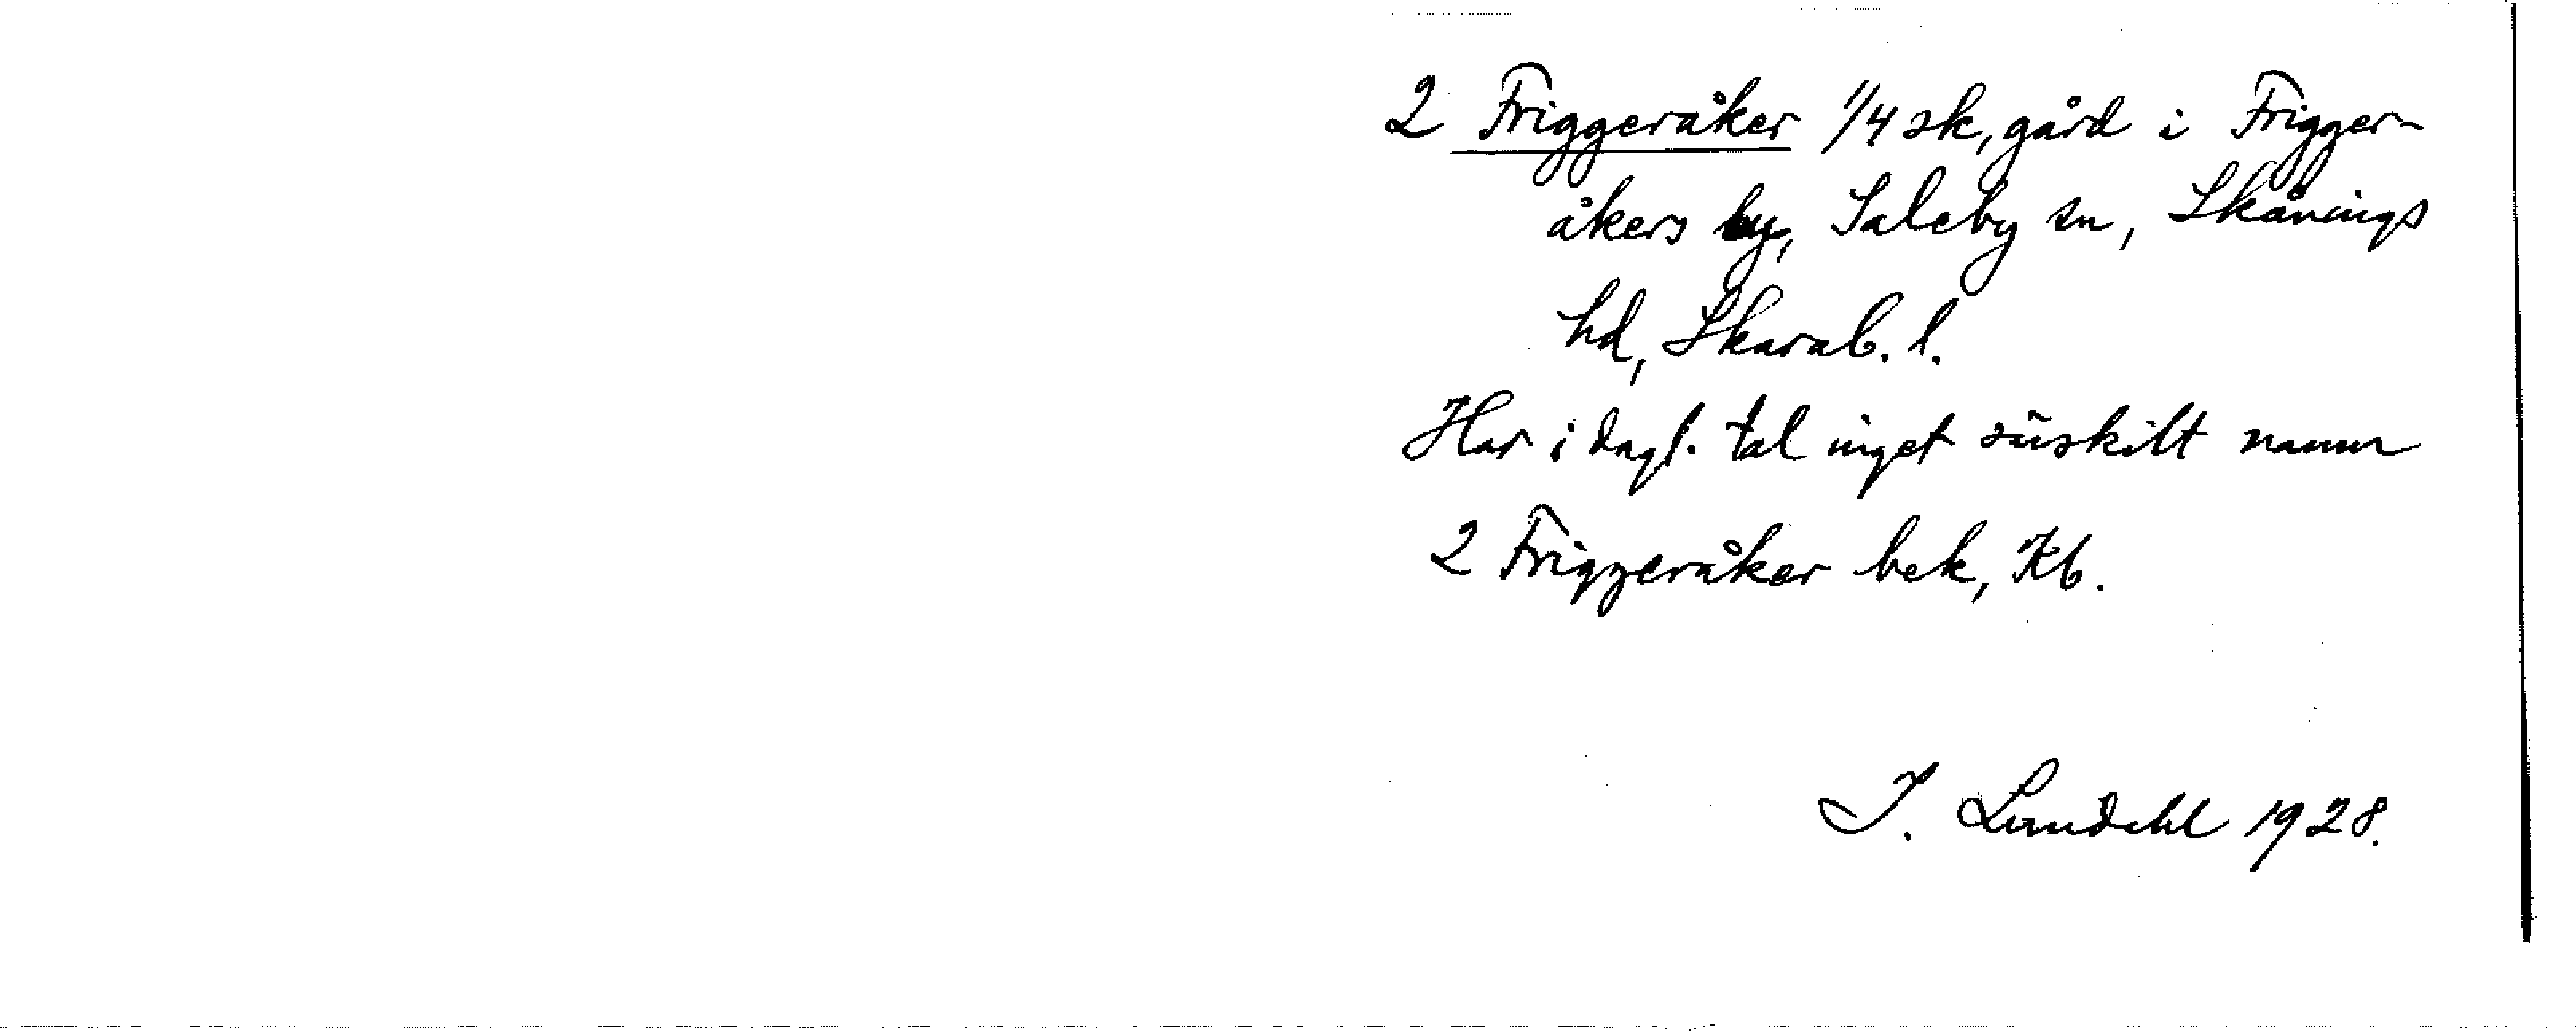 2 Friggeråker 1/4 sk, gård i Frigger-
åkers by, Saleby sn, Skånings
hd, Skarab. l.
Har i dagl. tal inget särskilt namn
2 Friggeråker bek, Kb.
I. Lundahl 1928.